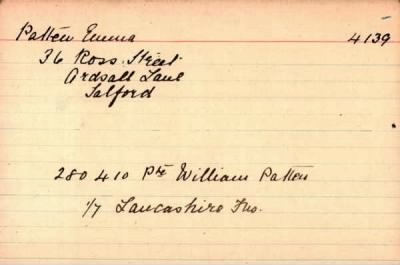 Patten Emma 4139
36 Ross. Street
Ordsall Lane
Salford
280410 Pte William Patten
1/7 Lancashire Fus.